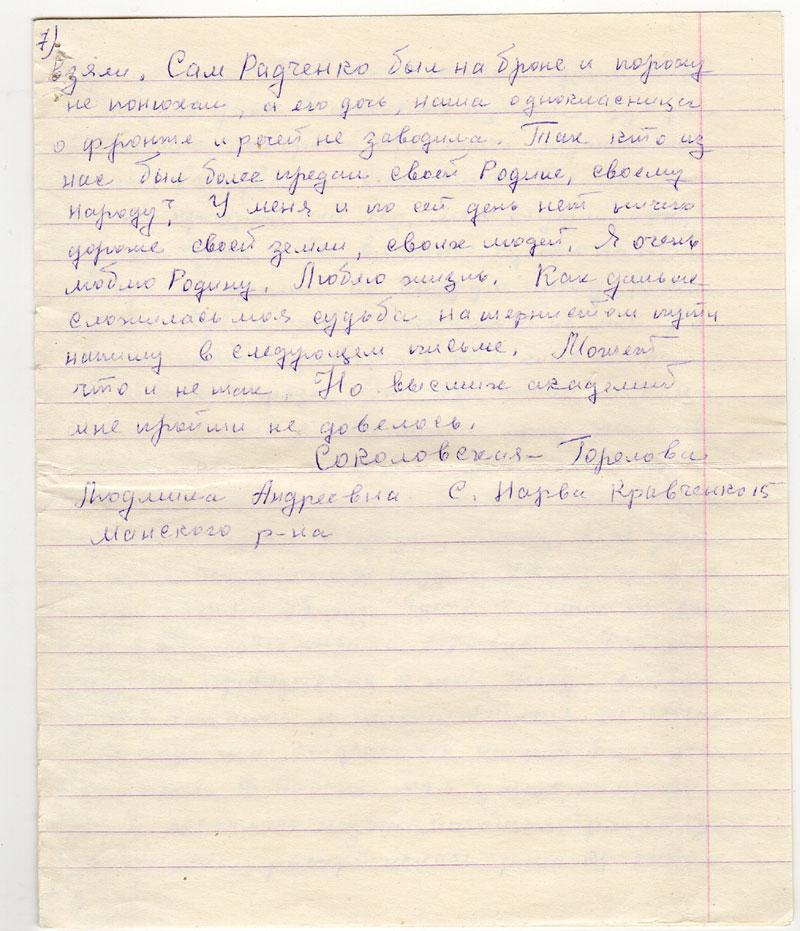 7).
взяли. Сам Радченко был на броне и пороху
не понюхал, а его дочь, наша однокласница
о фронте и речей не заводила. Так кто из
нас был более предан своей Родине, своему
народу? У меня и по сей день нет ничего
дороже своей земли, своих людей. Я очень
люблю Родину. Люблю жизнь. Как дальше
сложилась моя судьба на тернистом пути
напишу в следующем письме. Может
что и не так. Но высших академий
мне пройти не довелось.
Соколовская- Горелова
Людмила Андреевна С. Нарва Кравченко 15
Манского р-на